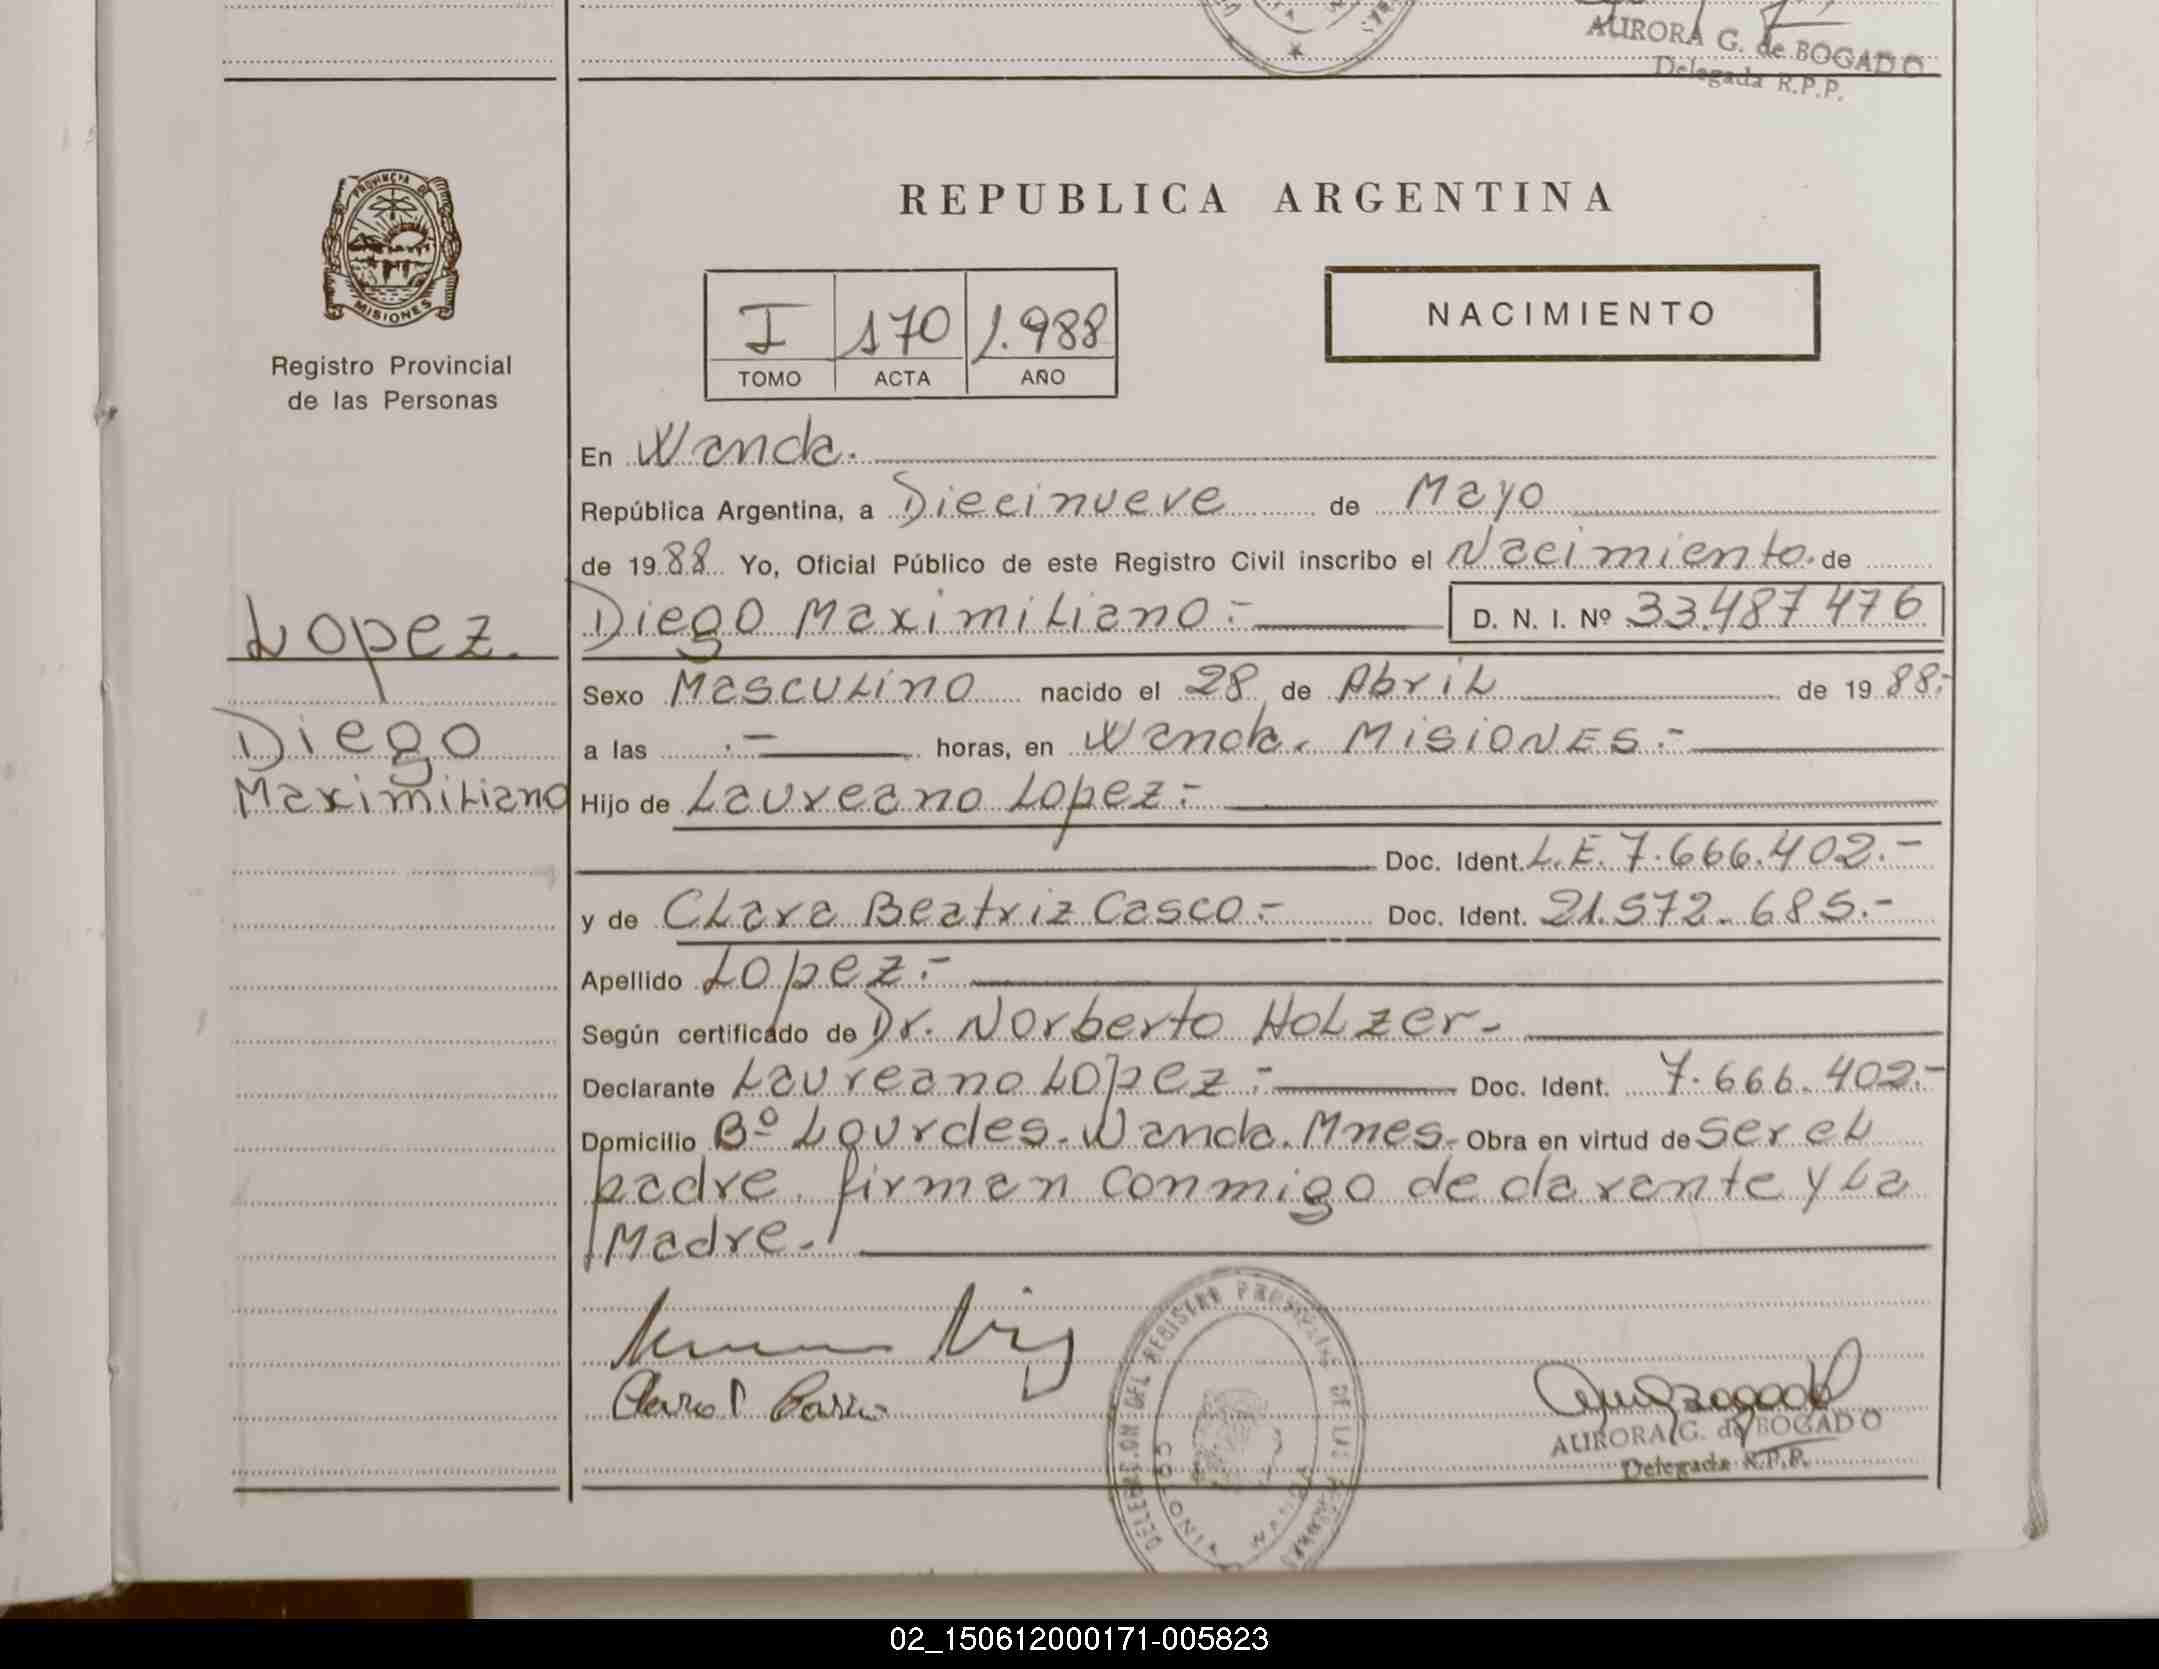 AURORA G. de BOGADO
Delegada R.P.P.
PROVINCIA DE
MISIONES
Registro Provincial
de las Personas
REPUBLICA ARGENTINA
I 170 1.988
TOMO ACTA AÑO
NACIMIENTO
En Wanda.
República Argentina, a Diecinueve de Mayo
de 1988 Yo, Oficial Público de este Registro Civil inscribo el Nacimiento. de
Lopez.
Diego
Maximiliano
Diego Maximiliano :- D. N. I. Nº 33.487476
Sexo Masculino nacido el 28 de Abril de 19 88.-
a las .- horas, en Wanda. MISIONES.-
Hijo de Laureano Lopez:-
Doc. Ident. L.E. 7.666.402.-
y de Clara Beatriz Casco.- Doc. Ident. 21.572.685.-
Apellido Lopez.-
Según certificado de Dr. Norberto Holzer-
Declarante Laureano Lopez.- Doc. Ident. 7.666.402.-
Domicilio Bº Lourdes. Wanda. Mnes.- Obra en virtud de ser el
padre. firman conmigo declarante y la
Madre.-
DELEGACION DEL REGISTRO PROVINCIAL DE LAS PERSONAS
WANDA
AURORA G. de BOGADO
Delegada R.P.P.
02_150612000171-005823